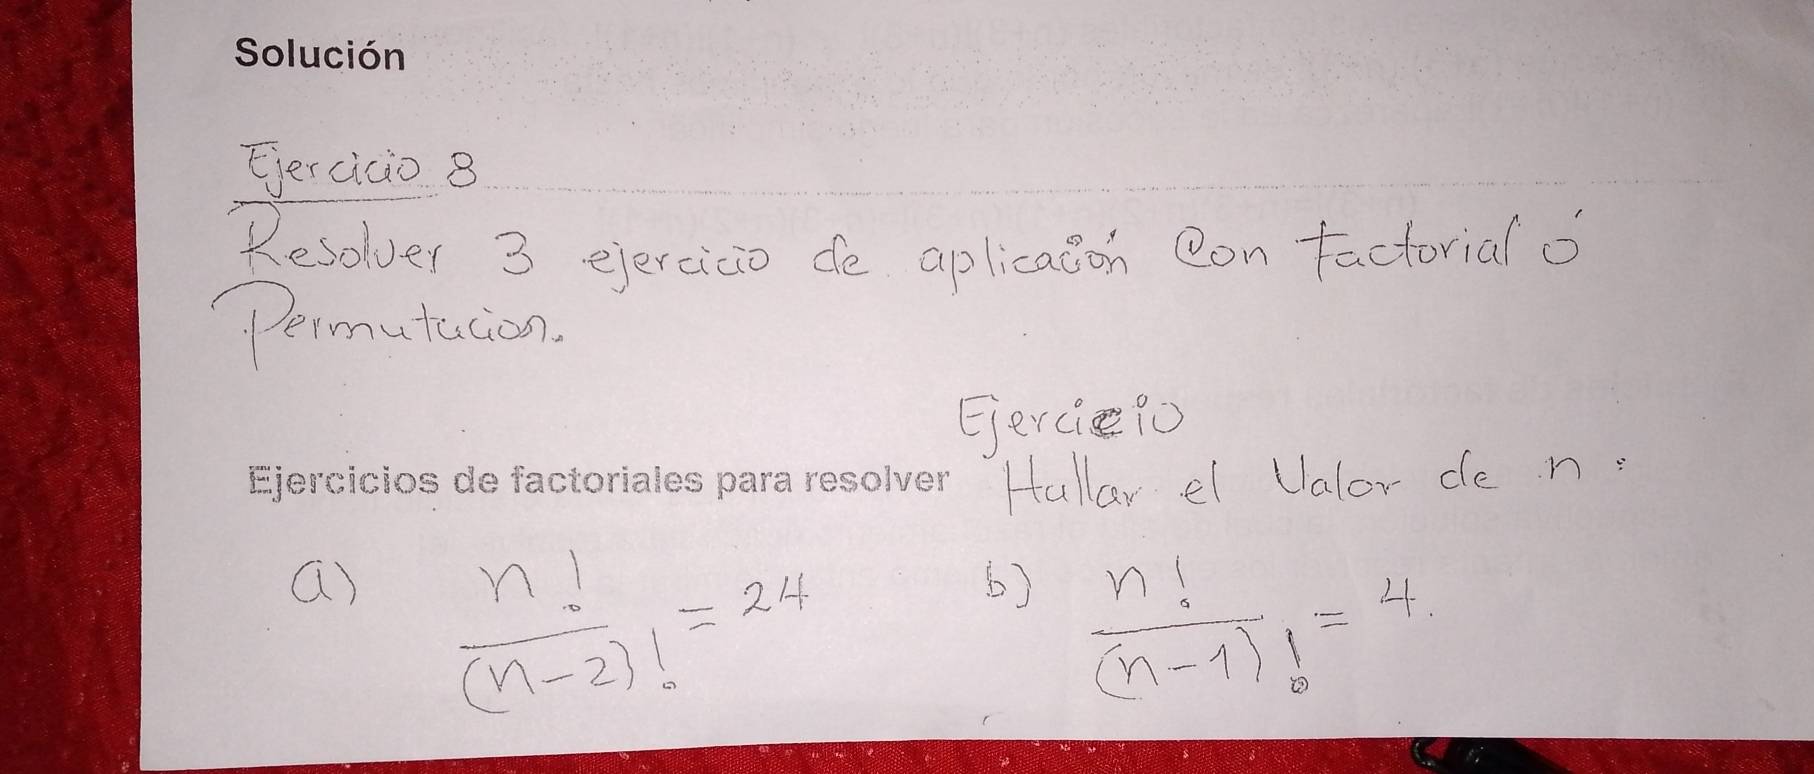 Solución
Ejercicio 8
Resolver 3 ejercicio de aplicación Con factorial ó
Permutacion.
Ejercicio
Ejercicios de factoriales para resolver Hallar el Valor de n:
a) n!/(n-2)! = 24 b) n!/(n-1)! = 4.